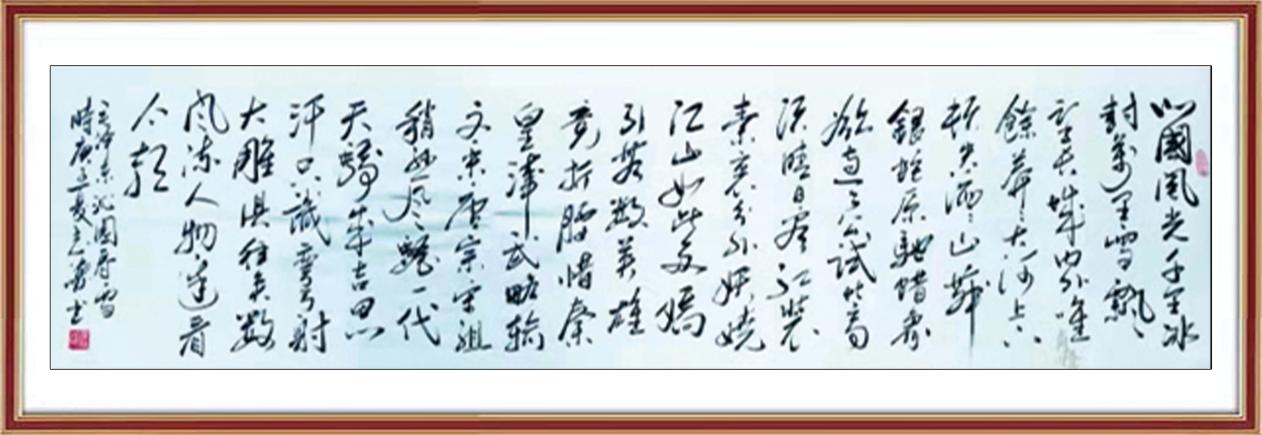 北國風光千里冰
封萬里雪飄
望長城內外唯
餘莽々大河上下
頓失滔々山舞
銀蛇原馳蜡象
欲與天公試比高
須晴日看紅裝
素裹分外妖嬈
江山如此多嬌
引無數英雄
竞折腰惜秦
皇漢武略輸
文采唐宗宋祖
稍遜風騷一代
天驕成吉思
汗只識彎弓射
大雕俱往矣數
風流人物還看
今朝
毛澤東沁園春雪
時庚子夏書